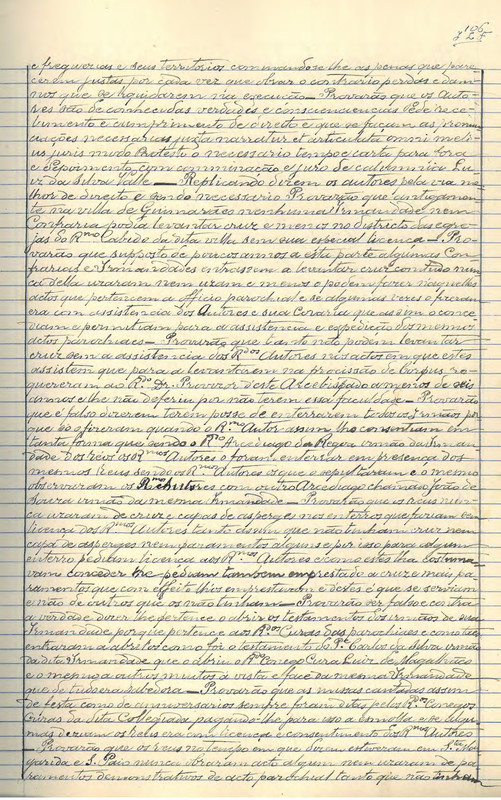 106
e freguezias e seus territorios commandose lhe as penas que pare
cerem justas por cada vez que obrar o contrario perdas e dam
nos que se liquidarem na execução Provarão que os Auto
res são de conhecidas verdades e consciencias Pede rece
bimento e cumprimento de direito e que se façam as pronun
ciações necessarias juxta narrata et articulata omni meli
ori juris modo Protesta o necessario tempo e carta para fora
e depoimento com comminação e juro de calumnia Lu
iz da Silva Valle — Replicando dizem os autores pela via me
lhor de direito e sendo necessario Provarão que antigamen
te na villa de Guimarães nenhuma Irmandade nem
Confraria podia levantar cruz e menos no districto das egre
jas do Rmo Cabido da dita villa sem sua especial licença — Pro
varão que supposto de poucos annos a esta parte algumas Con
frarias e Irmandades entrassem a levantar cruz comtudo nun
ca della usaram nem usam e menos o podem fazer naquelles
actos que pertencem a officio parochial e se algumas vezes o fizeram
era com assistencia dos Autores e sua Coraria que assim o conce
diam e permittiam para a assistencia e expedição dos mesmos
actos parochiaes — Provarão que tanto não podem levantar
cruz sem a assistencia dos Rdos Autores nos actos em que estes
assistem que para a levantarem na procissão de Corpus re
quereram ao Rdo Dr. Provisor d'este Arcebispado a menos de seis
annos e lhe não deferiu por não terem essa faculdade — Provarão
que é falso dizerem terem posse de enterrarem todos os Irmãos por
que só o fizeram quando o Rmo Autor assim lho consentiam em
tanta forma que sendo o Rmo Arcediago da Regoa irmão da Irman
dade dos reos os Rmos Autores o foram enterrar em presença dos
mesmos Reus sendo os Rmos Autores os que o sepultaram e o mesmo
observaram os Rmos Autores com outro Arcediago chamado João de
Souza irmão da mesma Irmandade — Provarão que os reus nun
ca usaram de cruz e capas de asperges nos enterros que faziam em
licença dos Rmos Autores tanto assim que não tinham cruz nem
capa de asperges nem paramentos alguns e por isso para algum
enterro pediam licença aos Rmos Autores e como estes lha costuma
vam conceder lhe pediam tambem emprestado a cruz e mais pa
ramentos que com effeito lhos emprestavam e destes é que se serviam
e não de outros que os não tinham — Provarão ser falso e contra
a verdade dizer lhe pertence o abrir os testamentos dos irmãos de sua
Irmandade porque pertence aos Rdos Curas das parochias e como taes
entraram a abril-os como foi o testamento do Pe Carlos da Silva irmão
da dita Irmandade que o abriu o Rdo Conego Cura Luiz de Magalhães
e o mesmo a outros muitos á vista e face da mesma Irmandade
que de tudo era sabedora — Provarão que as missas cantadas assim
de festa como de anniversarios sempre foram ditas pelos Rdos Conegos
Curas da dita Collegiada pagando-lhe para isso a esmolla e se algu
mas diziam os reus era com licença e consentimento dos Rmos Autores
— Provarão que os reus no tempo em que dizem estiveram em Sta Mar
garida e S. Paio nunca obraram acto algum nem usaram de pa
ramentos demonstrativos de acto parochial tanto que não tinham